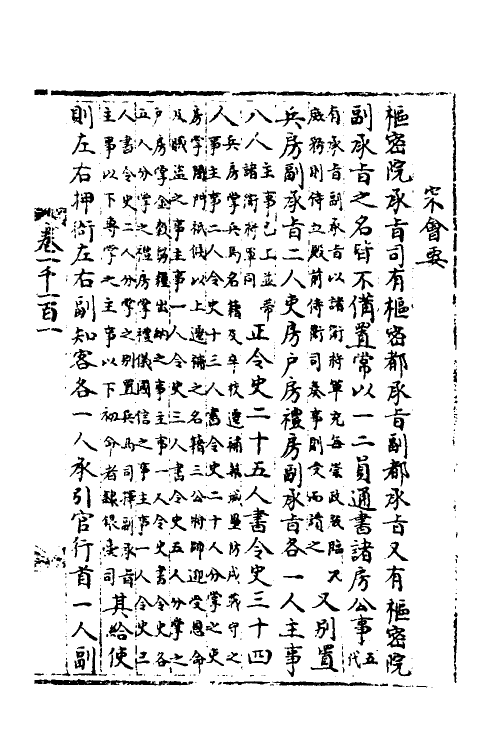 宋會要
樞密院承旨司有樞密都承旨副都承旨又有樞密院
副承旨之名皆不備置常以一二員通書諸房公事五代
有承旨副承旨以諸衛將軍充每崇政殿臨
庭務則侍立殿前侍衛司奏事則受而讀之又別置
兵房副承旨二人吏房户房禮房副承旨各一人主事
八人主事已上並帶
諸衛將軍同正令史二十五人書令史三十四
人兵房掌兵馬名籍及卒校遷補
人事主事二人令史十三人書令史二十人分掌之吏
房掌閤門祗候以上遷補之名籍三公將帥迎受恩命
及賊盜之事主事一人令史三人書令史五人分掌之
户房掌金穀芻糧出納之事主事一人令史書令史各
五人分掌之禮房掌禮儀國信之事主事一人令史三
人書令史二人分掌之別置兵馬司揮副承旨
主事以下專掌之主事以下初命者隸銀臺司其給使
則左右押衙左右副知客各一人承引官行首一人副
卷一千一百一